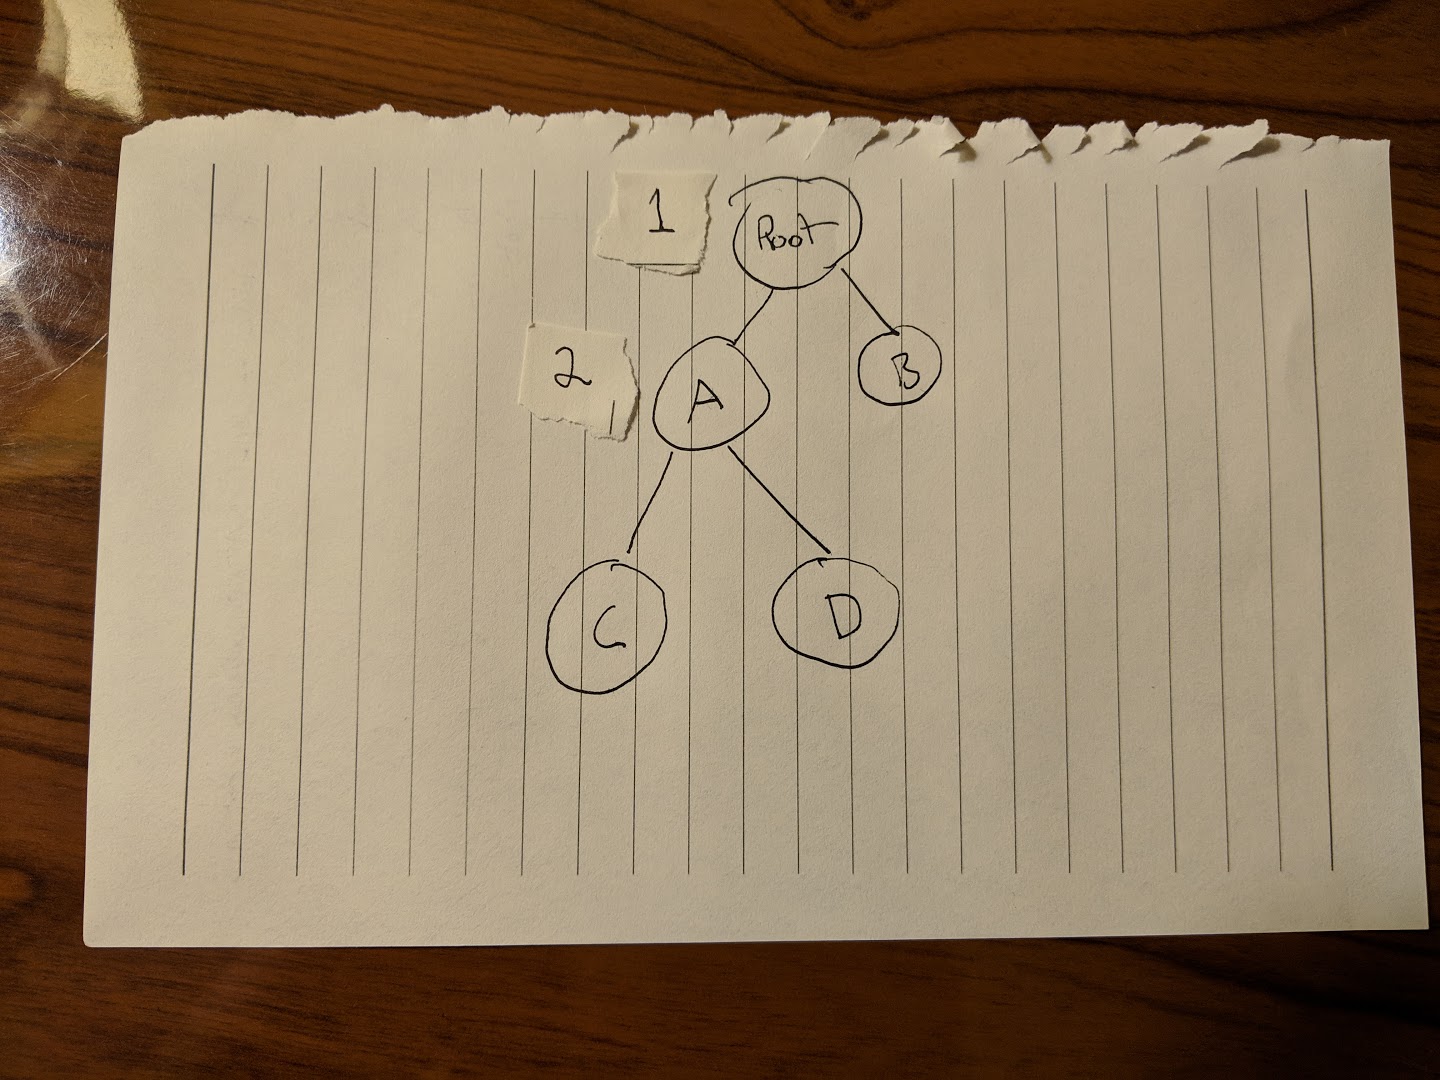 1
Root
2
A
B
C
D